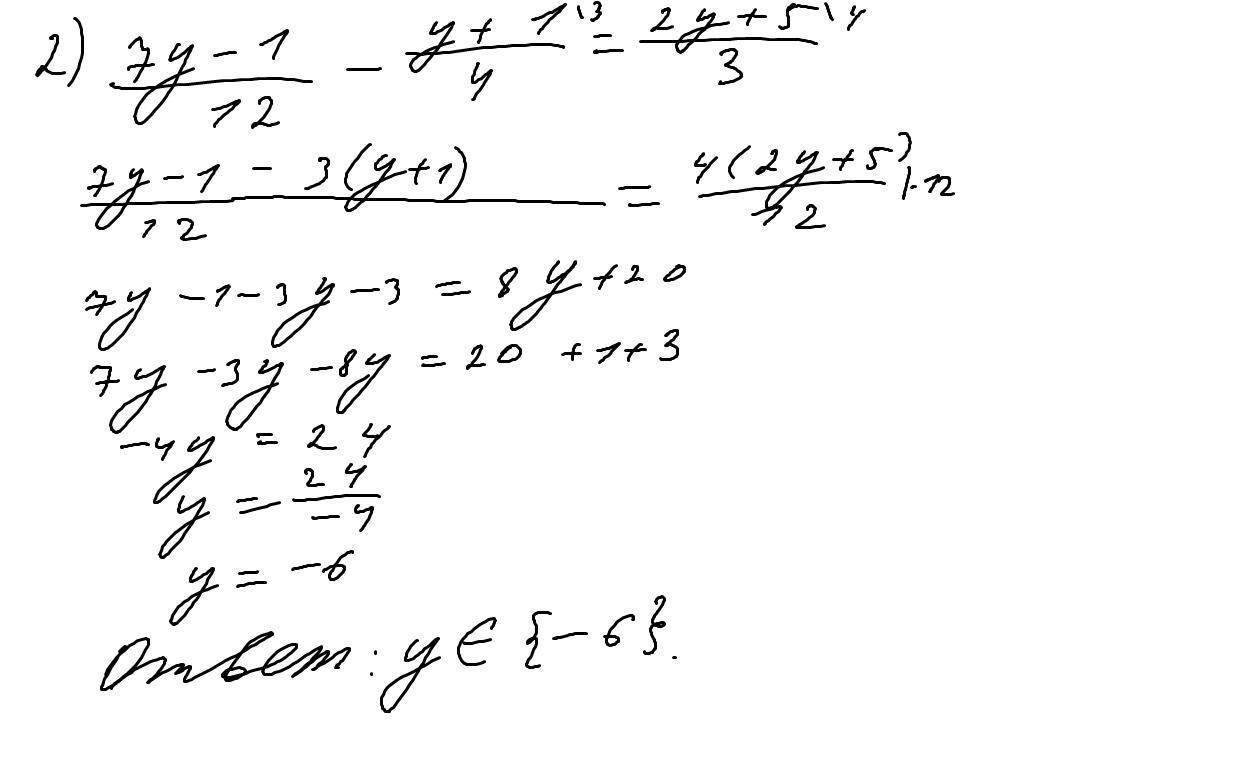 2) (7y - 1)/12 - (y + 1)/4 \3 = (2y + 5)/3 \4
(7y - 1 - 3(y + 1))/12 = 4(2y + 5)/12 | · 12
7y - 1 - 3y - 3 = 8y + 20
7y - 3y - 8y = 20 + 1 + 3
-4y = 24
y = 24/-4
y = -6
Ответ: y ∈ {-6}.